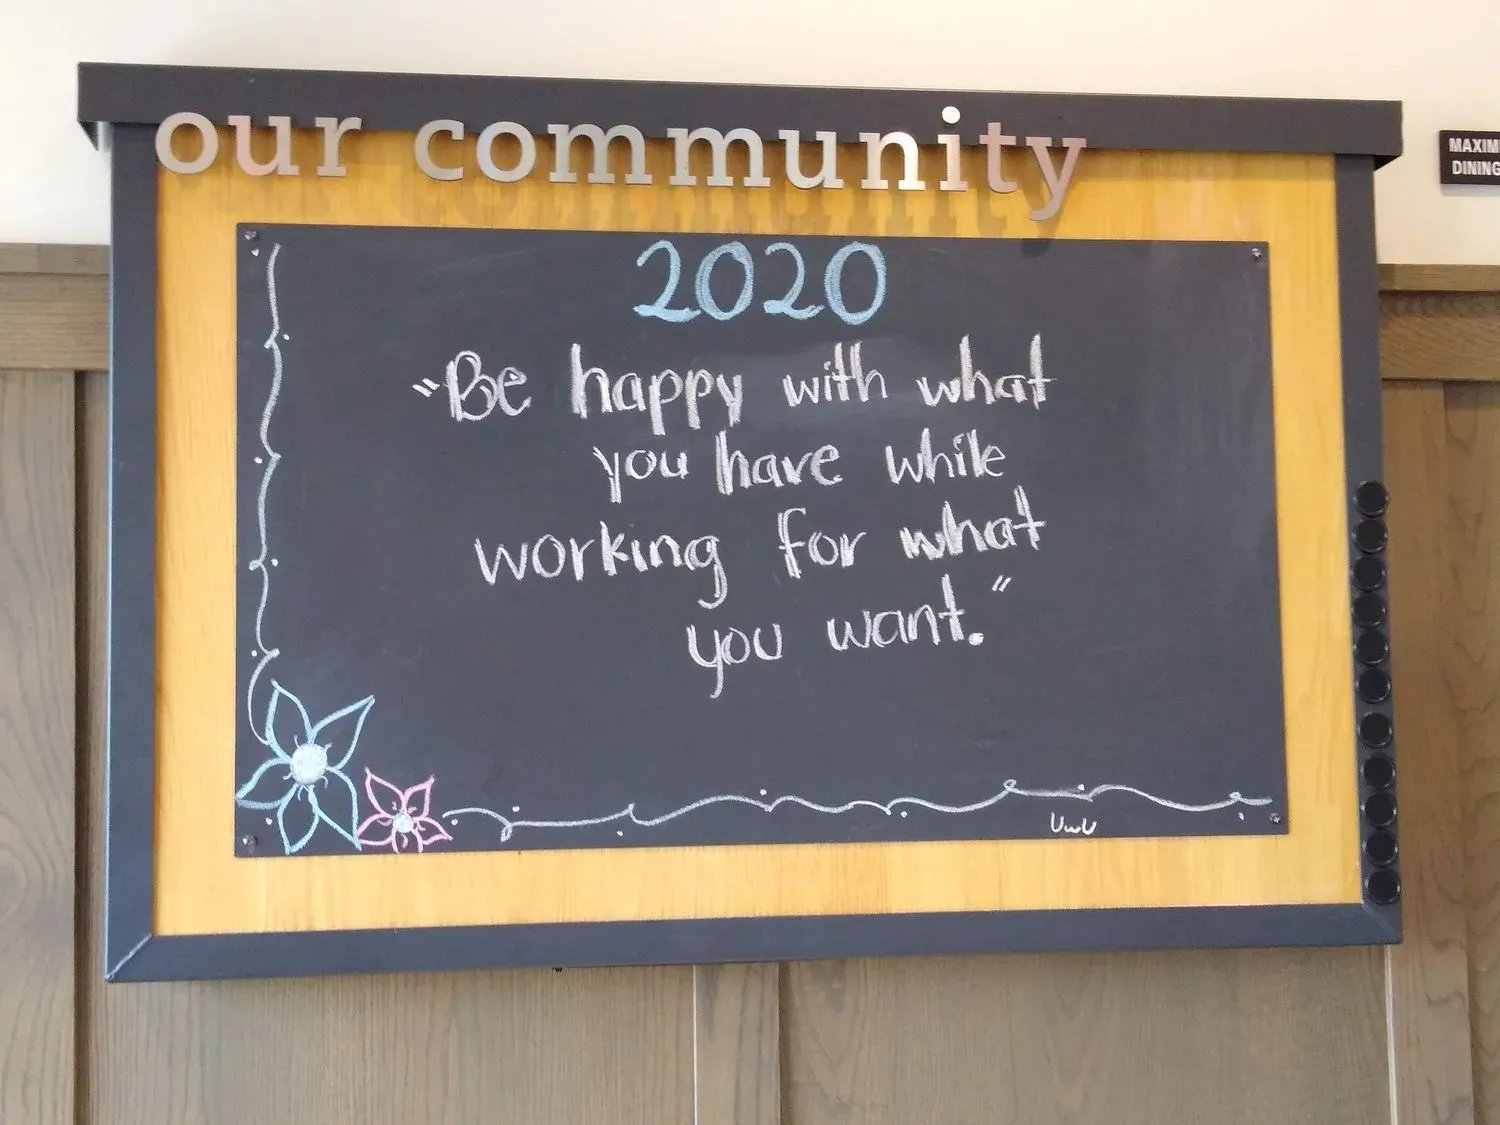 our community
2020
"Be happy with what
you have while
working for what
you want."
UwU
DINING